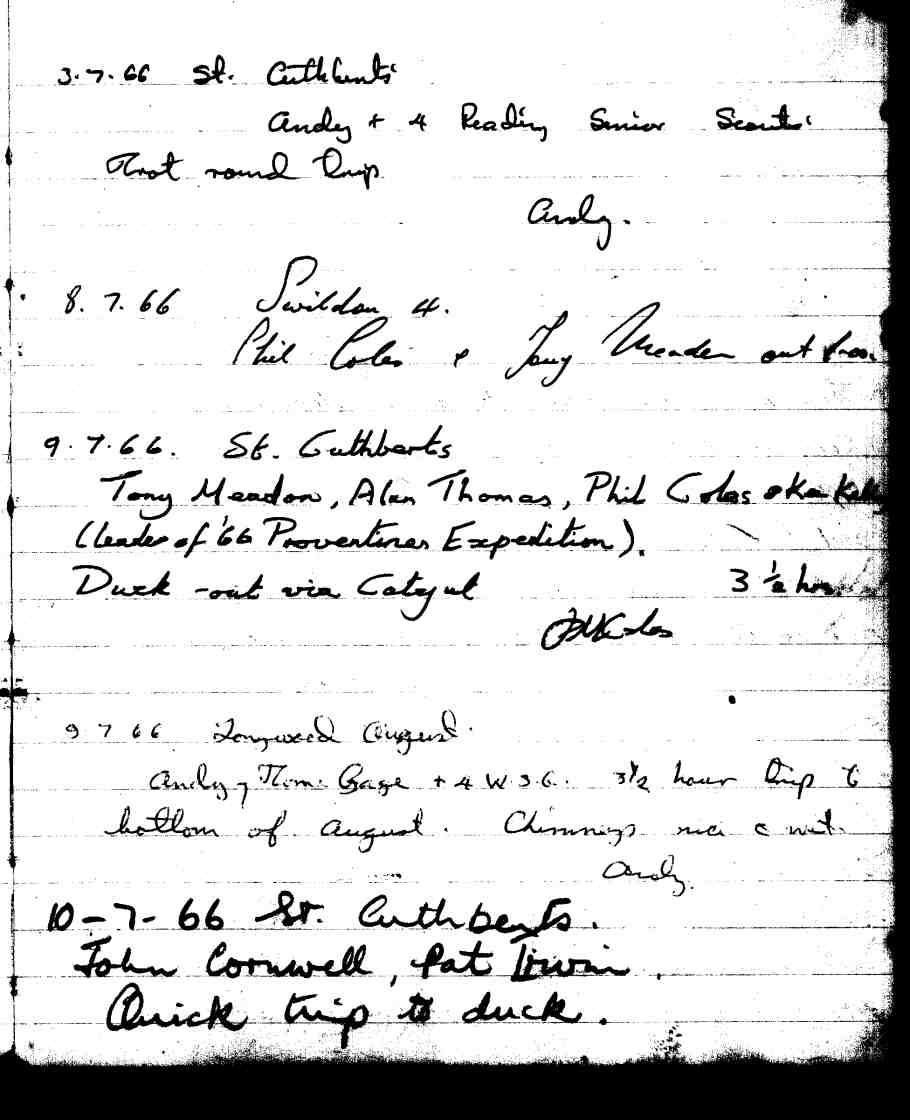 3.7.66 St. Cuthberts'
Andy + 4 Reading Senior Scouts'
round trip
Andy.
8. 7. 66 Swildon 4.
Phil Coles & Tony Meaden out
9.7.66. St. Cuthberts
Tony Meadon, Alan Thomas, Phil Coles aka
(leader of '66 Expedition).
Duck - out via Catgut 3 ½ hrs.
9 7 66 Longwood August.
Andy, Gage + 4 W.S.G. 3½ hour trip to
bottom of August. Chimneys nice & wet.
Andy.
10-7-66 St. Cuthberts.
John Cornwell, Pat Irwin.
Quick trip to duck.